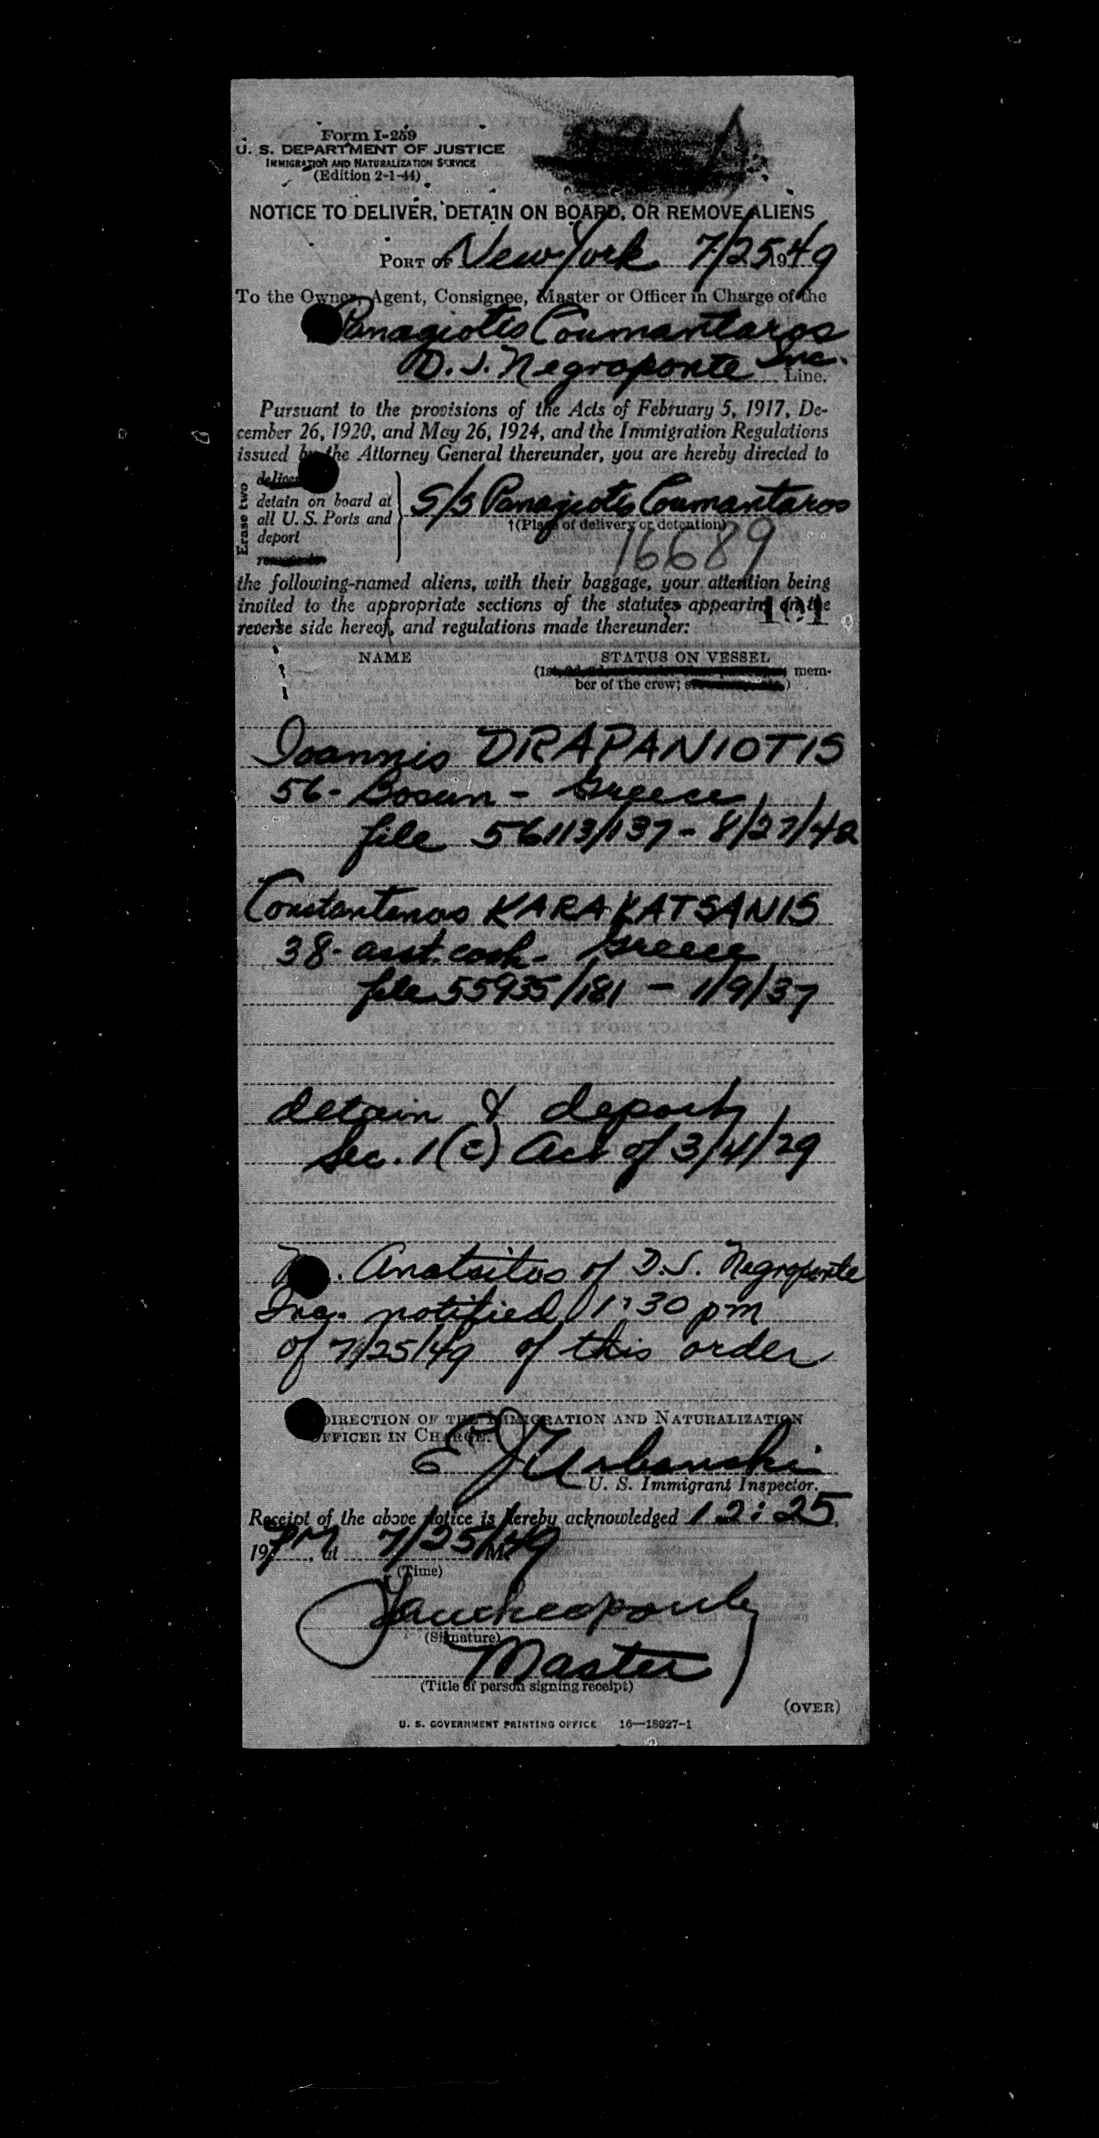 Form I-259
U. S. DEPARTMENT OF JUSTICE
IMMIGRATION AND NATURALIZATION SERVICE
(Edition 2-1-44)
NOTICE TO DELIVER, DETAIN ON BOARD, OR REMOVE ALIENS
PORT OF New York 7/25 1949
To the Owner, Agent, Consignee, Master or Officer in Charge of the
Panagiotis Coumantaros
D. J. Negroponte Inc. Line.
Pursuant to the provisions of the Acts of February 5, 1917, De-
cember 26, 1920, and May 26, 1924, and the Immigration Regulations
issued by the Attorney General thereunder, you are hereby directed to
Erase two
deliver
detain on board at
all U. S. Ports and
deport
S/S Panagiotis Coumantaros
†(Place of delivery or detention)
16689
the following-named aliens, with their baggage, your attention being
invited to the appropriate sections of the statutes appearing on the
101
reverse side hereof, and regulations made thereunder:
NAME STATUS ON VESSEL
(1st, mem-
ber of the crew; )
Ioannis DRAPANIOTIS
56- Bosun - Greece
file 56113/137 - 8/27/42
Constantenos KARAKATSANIS
38- asst. cook- Greece
file 55935/181 - 1/9/37
detain & deport
Sec. 1(c) Act of 3/4/29
. Anatsitos of D.J. Negroponte
Inc. notified 1:30 pm
of 7/25/49 of this order
DIRECTION OF THE IMMIGRATION AND NATURALIZATION
OFFICER IN CHARGE.
E J Urbanski
U. S. Immigrant Inspector.
Receipt of the above notice is hereby acknowledged 12:25,
19 PM, at 7/25/49 M.
(Time)
(Signature)
Master
(Title of person signing receipt)
(OVER)
U. S. GOVERNMENT PRINTING OFFICE 16—18027-1